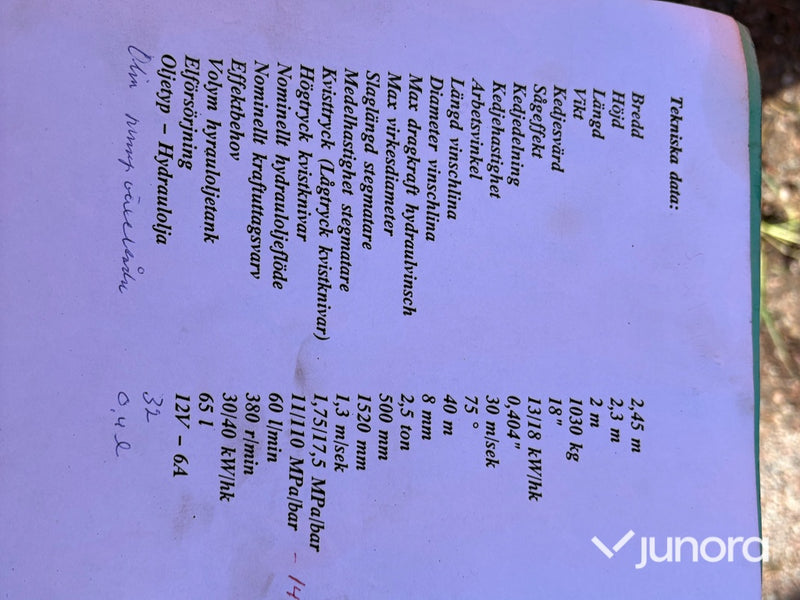 Tekniska data:
Bredd 2,45 m
Höjd 2,3 m
Längd 2 m
Vikt 1030 kg
Kedjesvärd 18"
Sågeffekt 13/18 kW/hk
Kedjedelning 0,404"
Kedjehastighet 30 m/sek
Arbetsvinkel 75 °
Längd vinschlina 40 m
Diameter vinschlina 8 mm
Max dragkraft hydraulvinsch 2,5 ton
Max virkesdiameter 500 mm
Slaglängd stegmatare 1520 mm
Medelhastighet stegmatare 1,3 m/sek
Kvisttryck (Lågtryck kvistknivar) 1,75/17,5 MPa/bar
Högtryck kvistknivar 11/110 MPa/bar - 14
Nominellt hydrauloljeflöde 60 l/min
Nominellt kraftuttagsvarv 380 r/min
Effektbehov 30/40 kW/hk
Volym hyrauloljetank 65 l
Elförsörjning 12V – 6A
Oljetyp – Hydraulolja 32
pump växellåda 0,4 l
junora